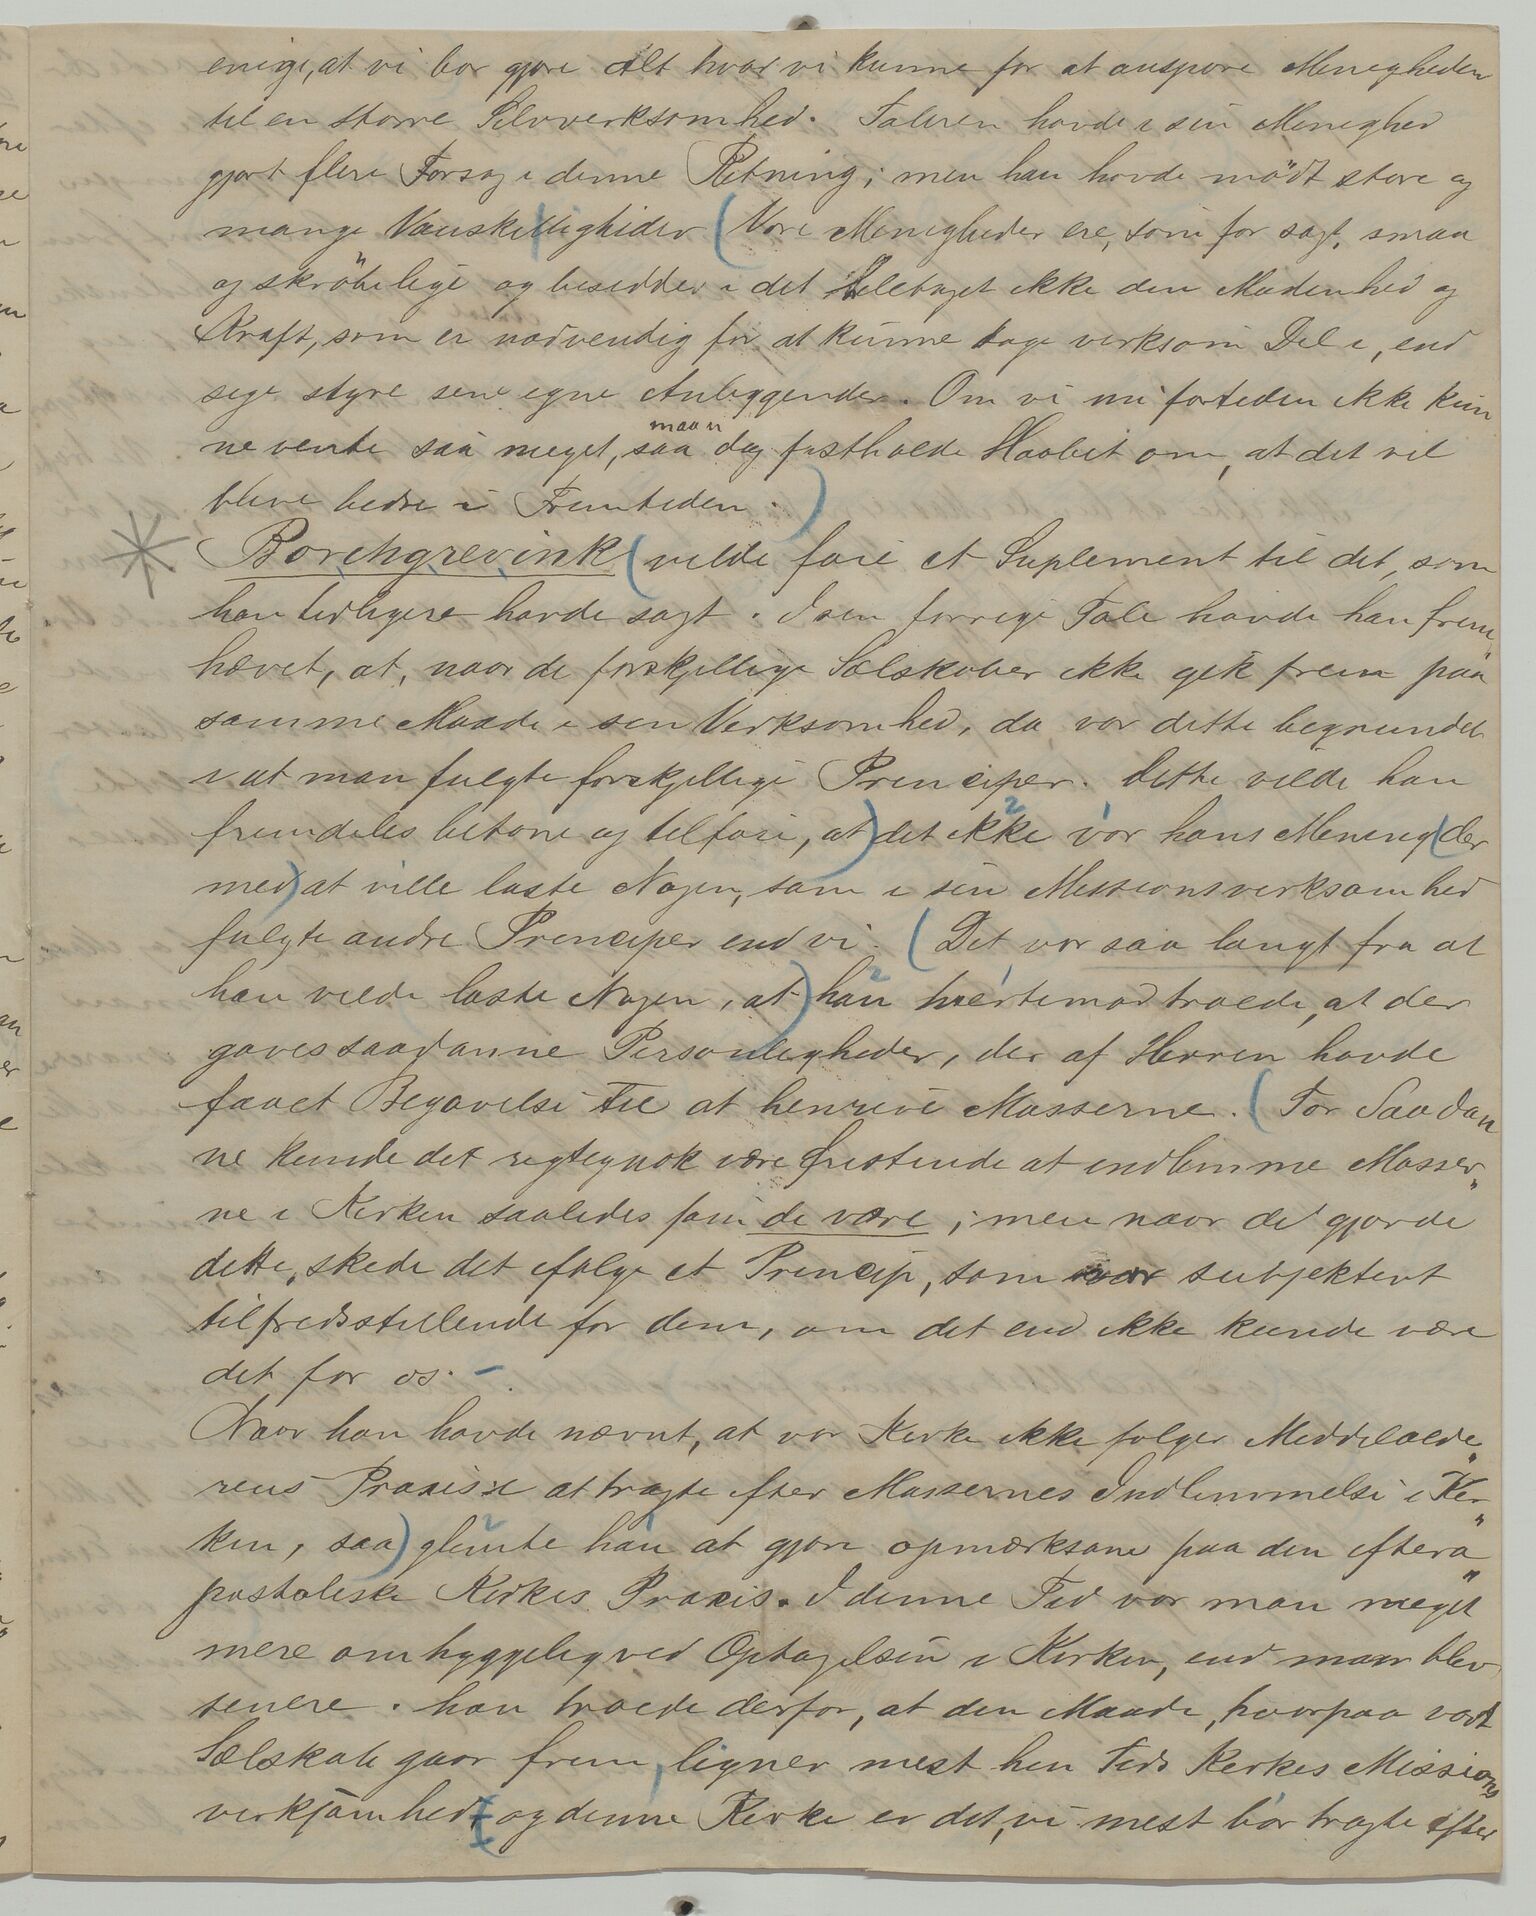 enige, at vi bør gjøre Alt hvad vi kunne for at anspore Menigheden
til en større Selvverksomhed. Taleren havde i sin Menighed
gjort flere Forsøg i denne Retning; men han havde mödt store og
mange Vanskelligheder (Vore Menigheder ere, som før sagt, smaa
og skröbelige og besidder i det Heletaget ikke den Modenhed og
Kraft, som er nødvendig for at kunne tage virksom Del i, end
sige styre sine egne Anliggender. Om vi nu fortiden ikke kun
ne vente saa meget, saa maa vi dog fastholde Haabet om, at det vil
blive bedre i Fremtiden.)
Borchgrevink (vilde føie et Suplement til det, som
han tidligere havde sagt. I sin forrige Tale havde han frem„
hævet, at, naar de forskjellige Selskaber ikke gik frem paa
samme Maade i sin Verksomhed, da var dette begrundet
i at man fulgte forskjellige Principer. Dette vilde han
fremdeles betone og tilføie, at) det ikke var hans Mening (der
med) at ville laste Nogen, som i sin Missionsverksomhed
fulgte andre Principer end vi. (Det var saa langt fra at
han vilde laste Nogen, at) han tvertimod troede, at der
gaves saadanne Personligheder, der af Herren havde
faaet Begavelse til at henrive Masserne. (For Saadan
ne kunde det rigtignok være fristende at indlemme Masser„
ne i Kirken saaledes som de vare; men naar de gjorde
dette, skede det ifølge et Princip, som var subjektivt
tilfredsstillende for dem, om det end ikke kunde være
det for os. –
Naar han havde nævnt, at vor Kirke ikke følger Middelalde„
rens Praxis: at tragte efter Massernes Indlemmelse i Kir„
ken, saa) glemte han at gjøre opmærksom paa den eftera„
postoliske Kirkes Praxis. I denne Tid var man meget
mere omhyggelig ved Optagelsen i Kirken, end man blev
senere. han troede derfor, at den Maade, hvorpaa vort
Selskab gaar frem, ligner mest hin Tids Kirkes Missions
verksomhed, og denne Kirke er det, vi mest bör tragte efter